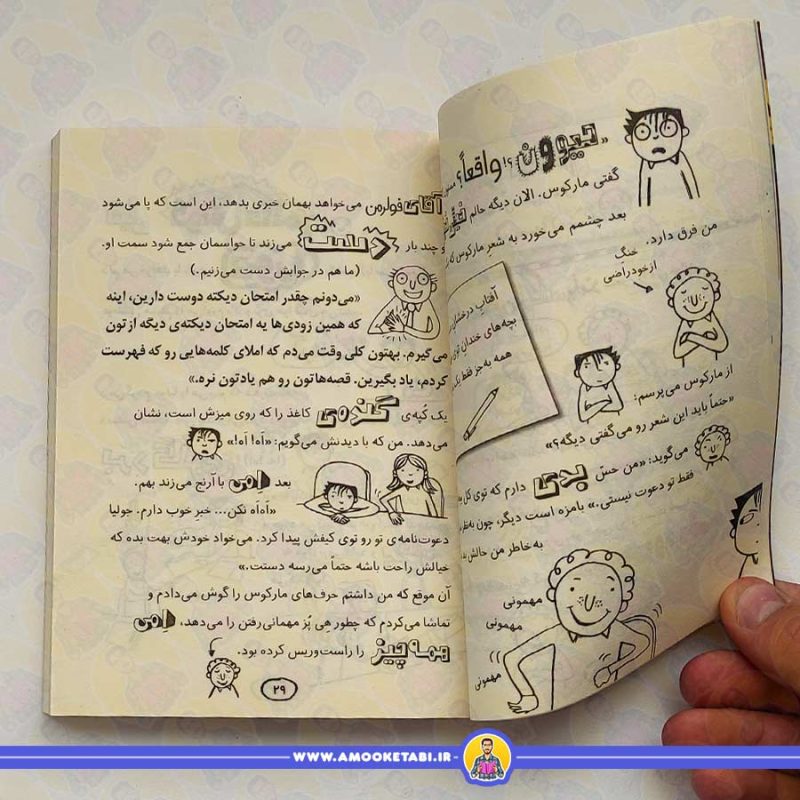 «حیوون؟! واقعاً؟
گفتی مارکوس. الان دیگه حالم
بعد چشمم می‌خورد به شعرِ مارکوس که
من فرق دارد.
خنگِ
ازخودراضی
آفتابِ درخشان
بچه‌های خندان توی
همه به‌جز فقط یک
از مارکوس می‌پرسم:
«حتماً باید این شعر رو می‌گفتی دیگه؟»
می‌گوید: «من حسّ بدی دارم که توی کل
فقط تو دعوت نیستی.» بامزه است دیگر، چون به‌نظر
به‌خاطر من حالش
مهمونی
مهمونی
مهمونی
آقای فولرمن می‌خواهد بهمان خبری بدهد، این است که پا می‌شود
و چند بار دست می‌زند تا حواسمان جمع شود سمت او.
(ما هم در جوابش دست می‌زنیم.)
«می‌دونم چقدر امتحان دیکته دوست دارین، اینه
که همین زودی‌ها یه امتحان دیکته‌ی دیگه ازتون
می‌گیرم. بهتون کلی وقت می‌دم که املای کلمه‌هایی رو که فهرست
کردم، یاد بگیرین. قصه‌هاتون رو هم یادتون نره.»
یک کُپه‌ی گنده‌ی کاغذ را که روی میزش است، نشان
می‌دهد. من که با دیدنش می‌گویم: «اَه! اَه!»
بعد اِمی با آرنج می‌زند بهم.
«اَه‌اَه نکن... خبرِ خوب دارم. جولیا
دعوت‌نامه‌ی تو رو توی کیفش پیدا کرد. می‌خواد خودش بهت بده که
خیالش راحت باشه حتماً می‌رسه دستت.»
آن موقع که من داشتم حرف‌های مارکوس را گوش می‌دادم و
تماشا می‌کردم که چطور هِی پُز مهمانی‌رفتن را می‌دهد، اِمی
همه‌چیز را راست‌وریس کرده بود.
۲۹
WWW.AMOOKETABI.IR